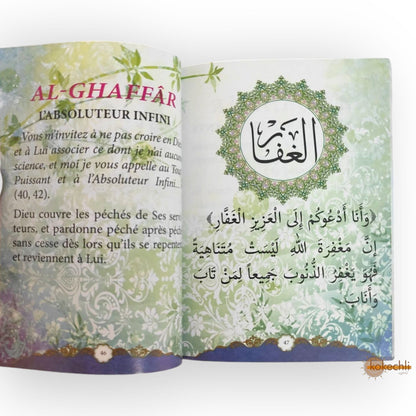 AL-GHAFFÂR
L'ABSOLUTEUR INFINI
Vous m'invitez à ne pas croire en Dieu
et à Lui associer ce dont je n'ai aucune
science, et moi je vous appelle au Tout
Puissant et à l'Absoluteur Infini...
(40, 42).
Dieu couvre les péchés de Ses servi-
teurs, et pardonne péché après péché
sans cesse dès lors qu'ils se repentent
et reviennent à Lui.
46
الغفار
﴿وَأَنَا أَدْعُوكُمْ إِلَى الْعَزِيزِ الْغَفَّارِ﴾
إِنَّ مَغْفِرَةَ اللَّهِ لَيْسَتْ مُتَنَاهِيَةً
فَهُوَ يَغْفِرُ الذُّنُوبَ جَمِيعاً لِمَنْ تَابَ
وَأَنَابَ.
47
kokechli